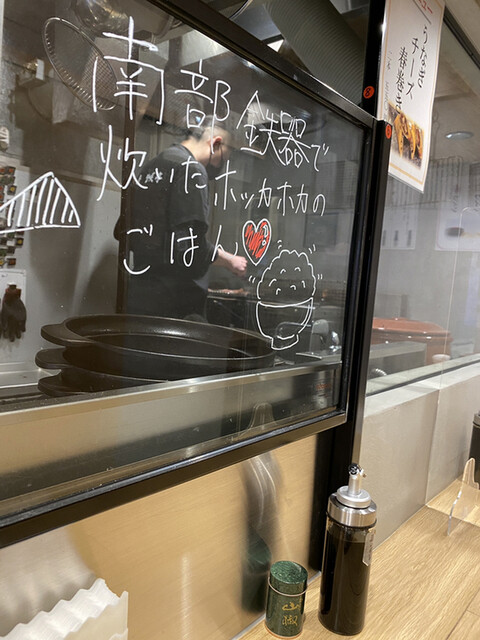 南部鉄器で
炊いたホッカホカの
ごはん
うなぎ
チーズ
春巻き
山椒